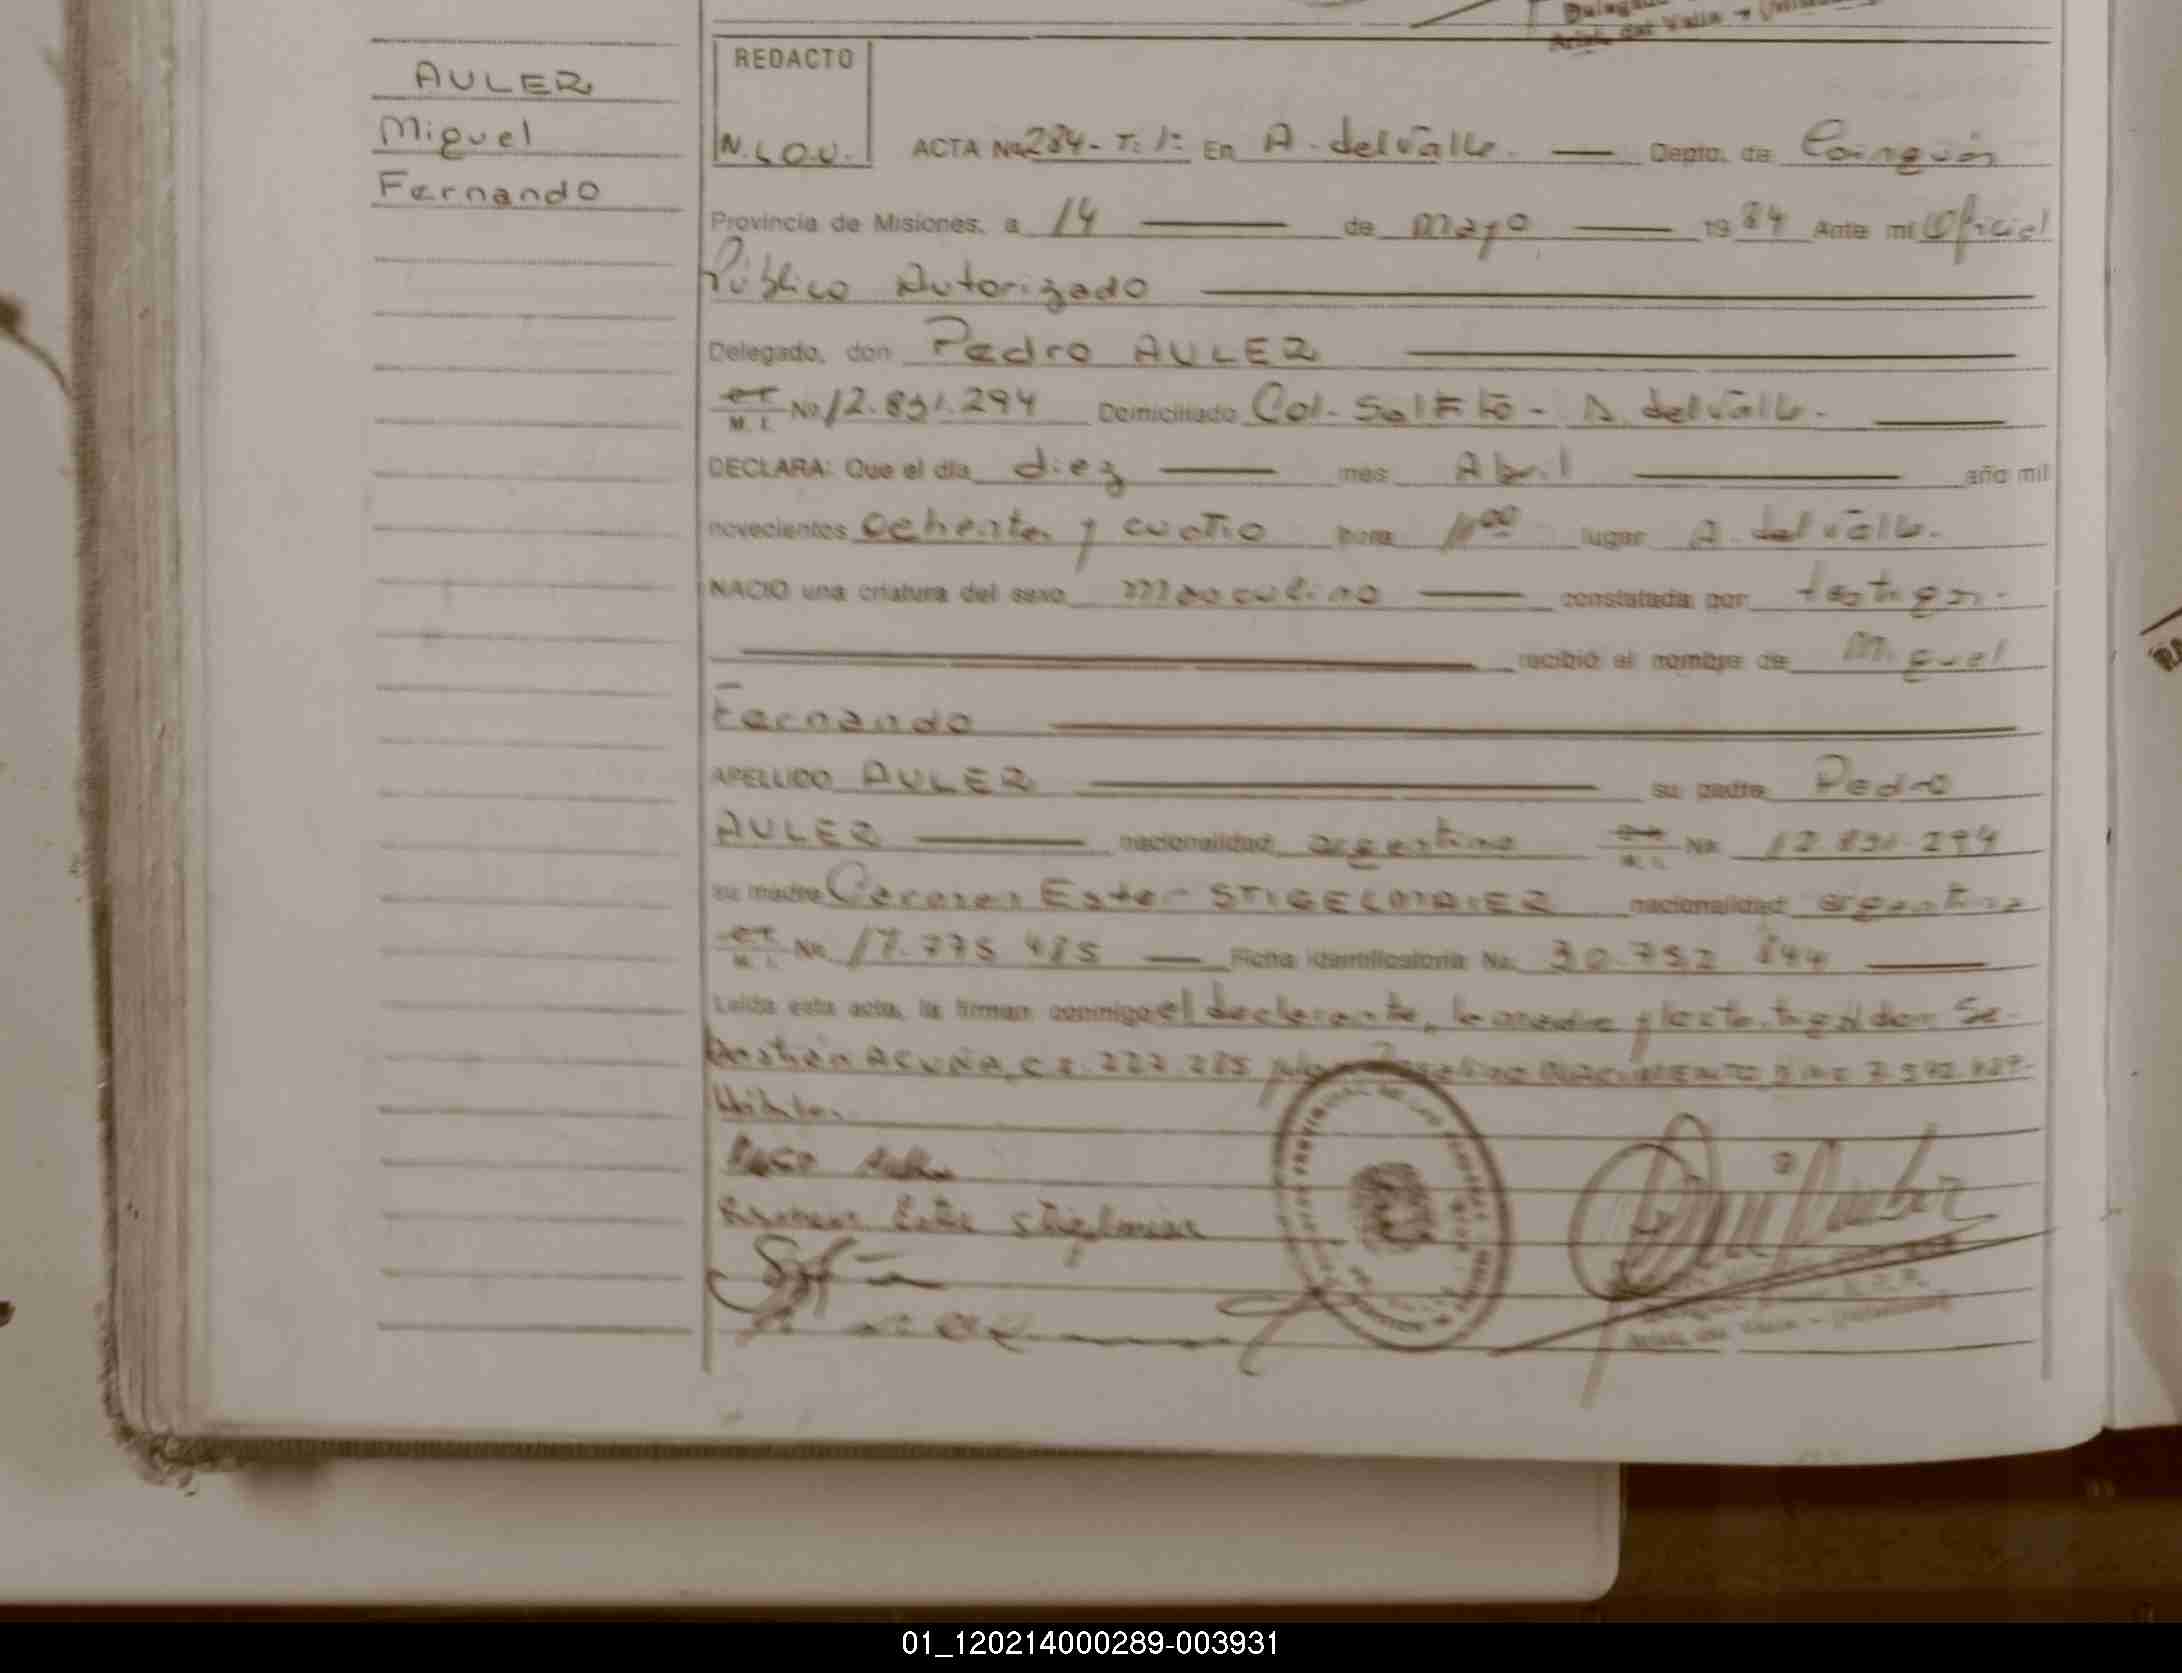 AULER
Miguel
Fernando
REDACTO
N.L.O.V.
ACTA No 284- T: 1: En A. del Valle. Depto. de Cainguás
Provincia de Misiones, a 14 de mayo 1984 Ante mi Oficial
Público Autorizado
Delegado, don Pedro AULER
M. I. No 12.891.294 Domiciliado Col. Saltito - A. del Valle.
DECLARA: Que el día diez mes Abril año mil
novecientos ochenta y cuatro hora 11 00 lugar A. del Valle.
NACIO una criatura del sexo masculino constatada por testigos.
recibió el nombre de Miguel
Fernando
APELLIDO AULER su padre Pedro
AULER nacionalidad argentino M. I. No 12.891.294
su madre Ester STIGELMAIER nacionalidad argentina
M. I. No 17.775 485 Ficha Identificatoria No 30.752 844
Leída esta acta, la firman conmigo el declarante, la madre y los testigos don Se-
bastián ACUÑA, C I. 227 285 NACIMIENTO
01_120214000289-003931